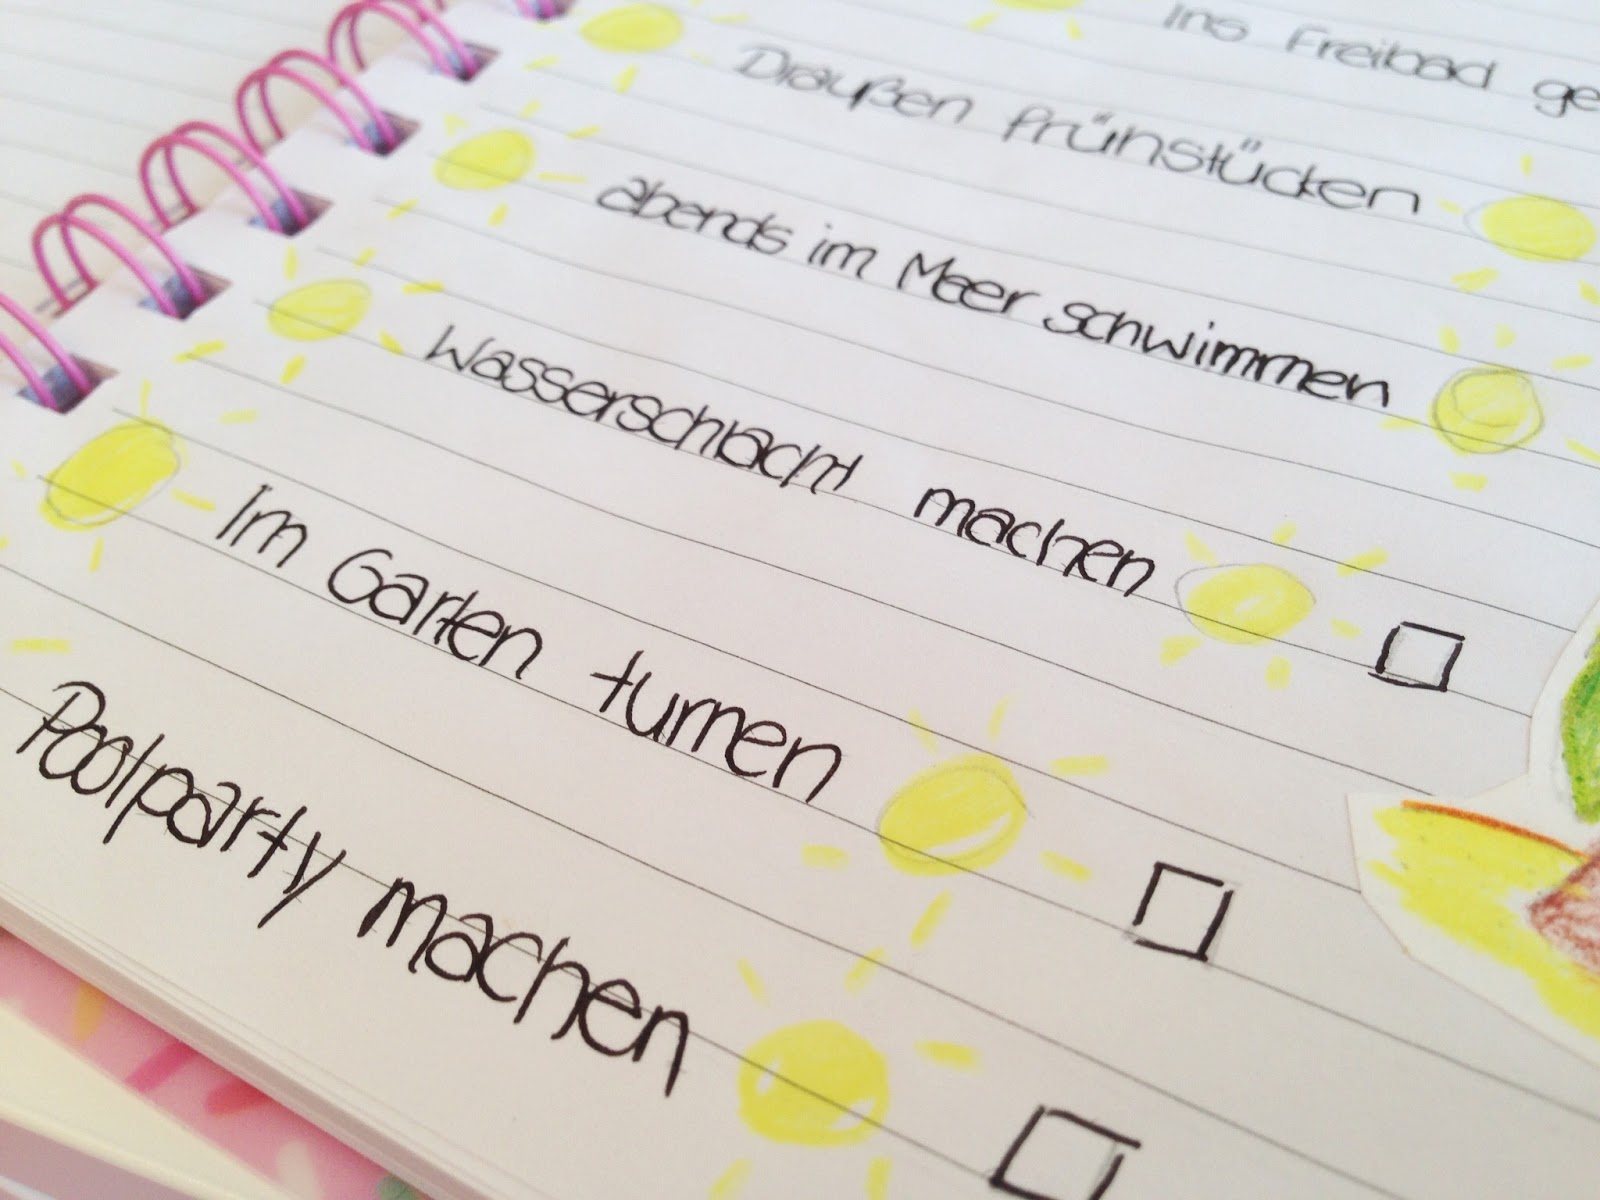 Ins Freibad ge
Draußen frühstücken
abends im Meer schwimmen
Wasserschlacht machen
Im Garten turnen
Poolparty machen